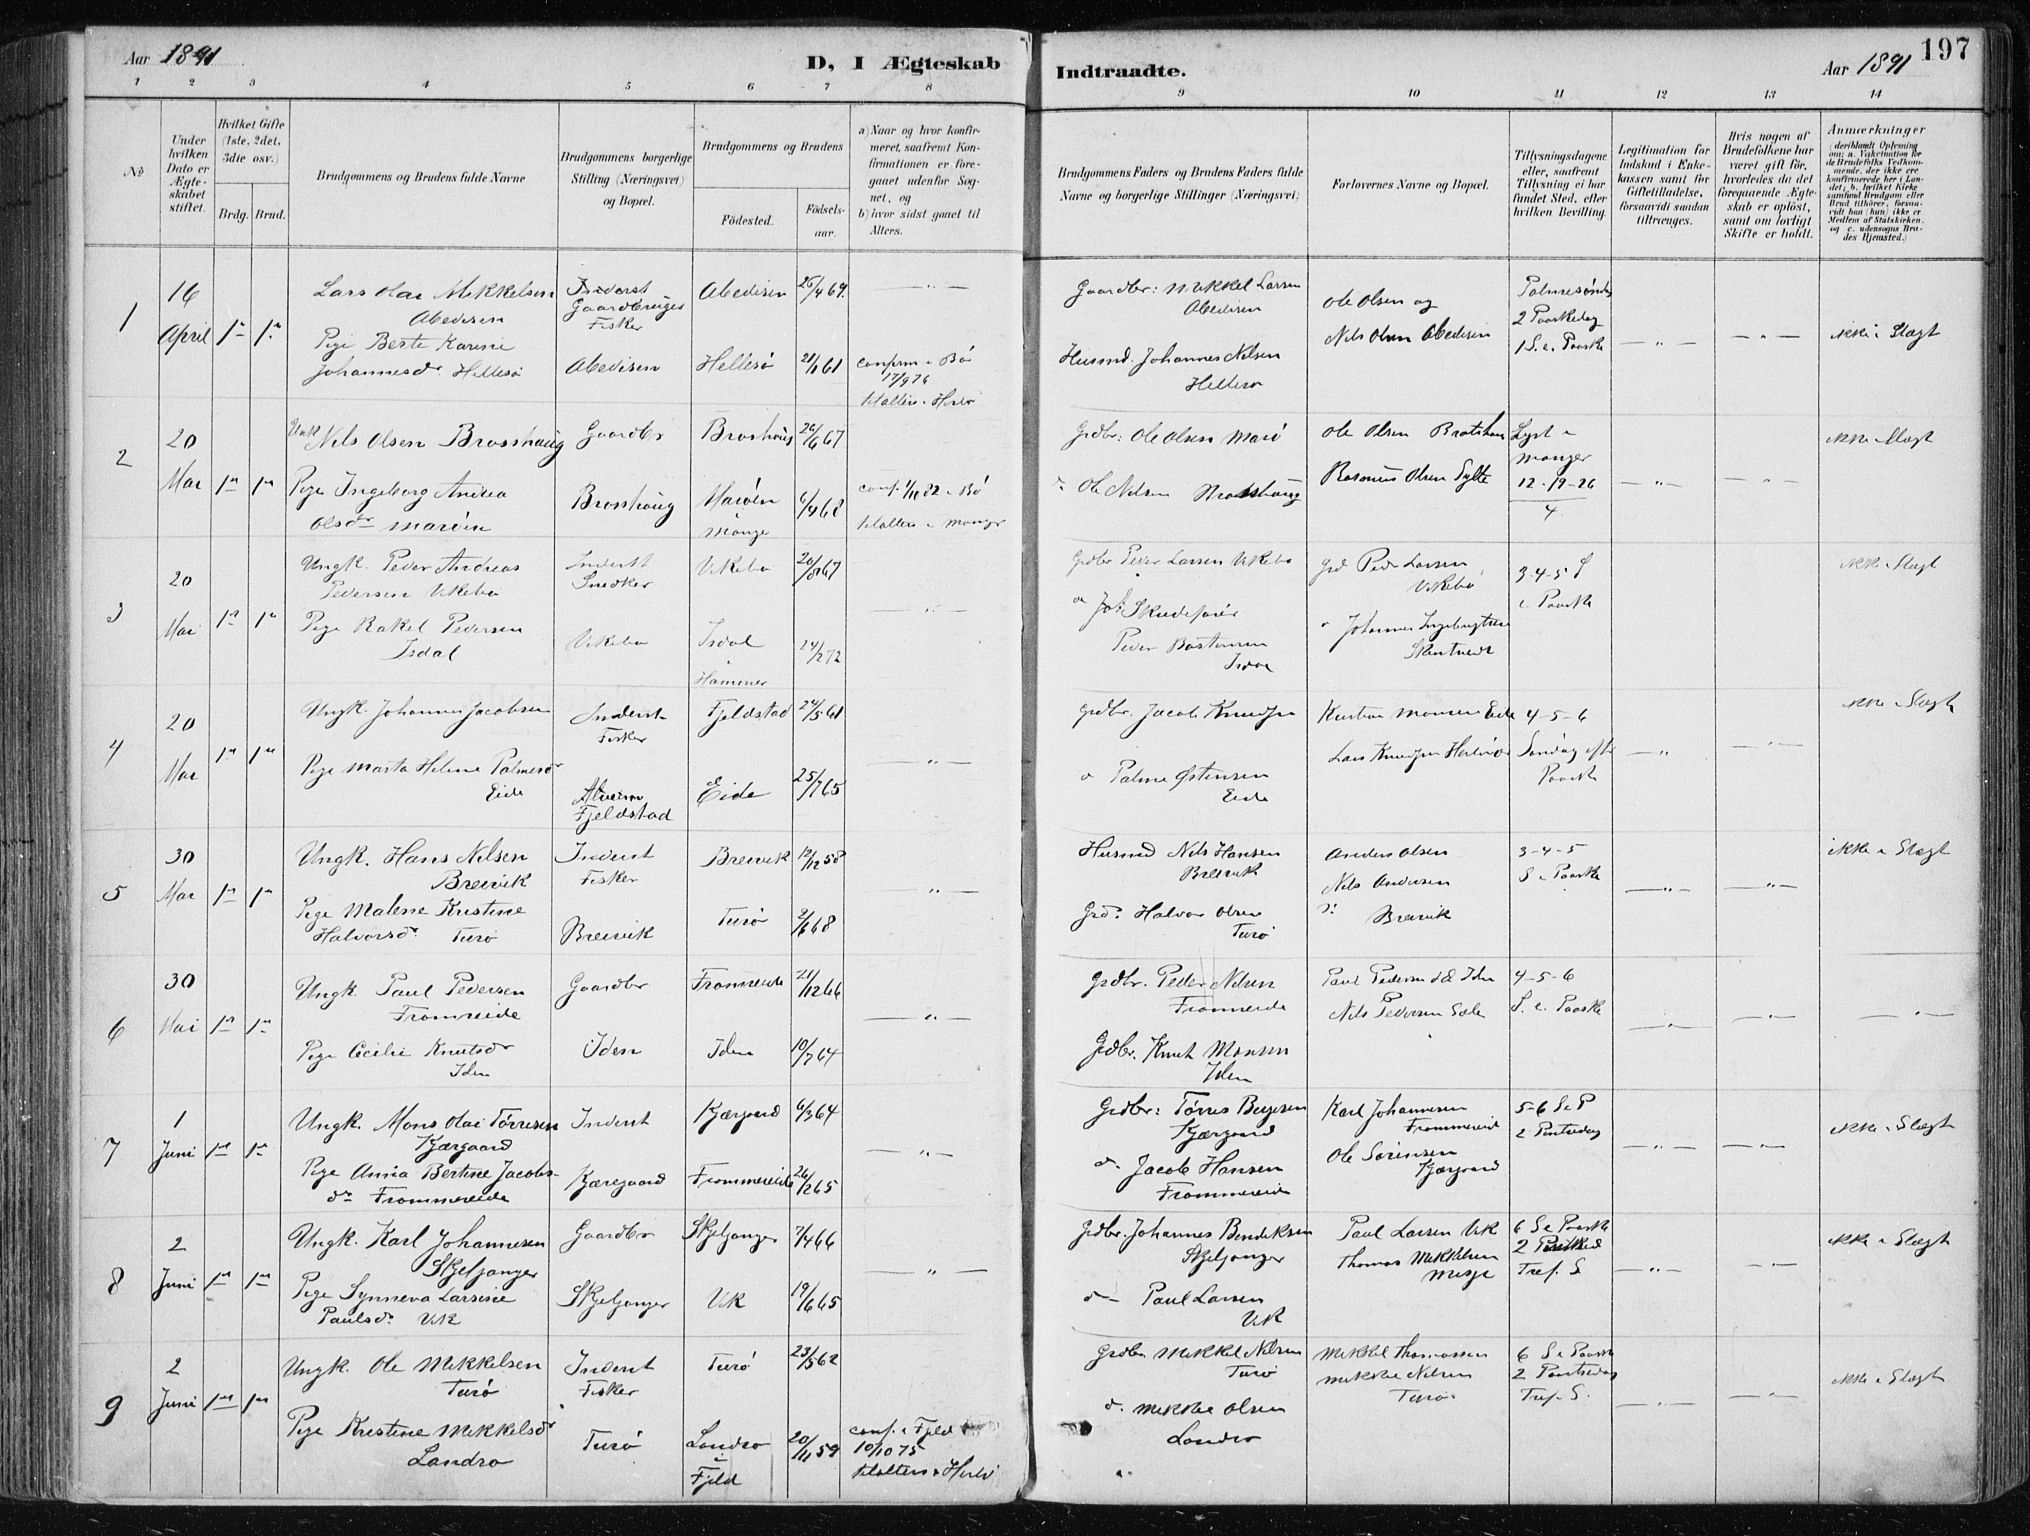 Aar 1891
D, I Ægteskab
Indtraadte.
Aar 1891
197
1 2 3 4 5 6 7 8 9 10 11 12 13 14
No
Under hvilken Dato er Ægteskabet stiftet.
Hvilket Gifte (1ste, 2det, 3die osv.)
Brdg. Brud.
Brudgommens og Brudens fulde Navne
Brudgommens borgerlige Stilling (Næringsvei) og Bopæl.
Brudgommens og Brudens
Födested.
Födsels-aar.
a) Naar og hvor konfirmeret, saafremt Konfirmationen er foregaaet udenfor Sognet, og
b) hvor sidst gaaet til Alters.
Brudgommens Faders og Brudens Faders fulde Navne og borgerlige Stillinger (Næringsvei)
Forlovernes Navne og Bopæl.
Tillysningsdagene eller, saafremt Tillysning ei har fundet Sted, efter hvilken Bevilling.
Legitimation for Indskud i Enkekassen samt for Giftetilladelse, forsaavidt saadan tiltrænges.
Hvis nogen af Brudefolkene har været gift för, hvorledes da det foregaaende Ægteskab er oplöst, samt om lovligt Skifte er holdt.
Anmærkninger
(deriblandt Oplysning om: a. Vakcination for de Brudefolks Vedkommende, der ikke ere konfirmerede her i Landet; b. hvilket Kirkesamfund Brudgom eller Brud tilhörer, forsaavidt han (hun) ikke er Medlem af Statskirken, og c. udensogns Brudes Hjemsted.)
1
16 April
1ste 1ste
Lars Olai Mikkelsen
Abedisen
Pige Berte Karine
Johannesdr Hellesö
Inderst
Gaardbruger
Fisker
Abedisen
Abedisen
Hellesö
26/4 69.
21/1 61
confirm i Bö
17/9 76
til alters i Herlö
Gaardbr: Mikkel Larsen
Abedisen
Husmd. Johannes Nilsen
Hellesö
Ole Olsen og
Nils Olsen Abedisen
Palmesöndag
2 Paaskedag
1 S. e. Paaske
ikke i Slægt
2
20 Mai
Ungk Nils Olsen Brosshaug
Pige Ingeborg Andrea
Olsdr Maröen
Gaardbr
Brosshaug
Broshaug
Maröen
Mange
26/6 67
6/4 68
conf. 1/10 82 i Bö
til alters i Manger
Grdbr: Ole Olsen Marö
Ole Nilsen
Ole Olsen
Rasmus Olsen Sylte
Lyst i
Manger
12-19-26
4
ikke i Slægt
3
20 Mai
Ungk. Peder Andreas
Pedersen Vikebö
Pige Rakel Pedersen
Isdal
Inderst
Snedker
Vikebö
Vikebö
Isdal
i
Hammer
20/8 67
24/2 72
Grdbr Peder Larsen Vikebö
Peder Bastensen
Grd Peder Larsen
Vikebö
3-4-5 S
e. Paaske
ikke i Slægt
4
20 Mai
Ungk. Johannes Jacobsen
Pige Marta Helene Palmesdr
Eide
Inderst
Fisker
Fjeldstad
Fjeldstad
Eide
24/5 61
25/7 65
Grdbr. Jacob Knudsen
Palme Østensen
Eide
Kristian Monsen Eide
Lars Knudsen
4-5-6
Söndag efter
Paaske
ikke i Slægt
5
30 Mai
Ungk. Hans Nilsen
Breivik
Pige Malene Kristine
Halvorsdr. Turö
Inderst
Fisker
Breivik
Breivik
Turö
12/12 58
2/6 68
Husmd Nils Hansen
Breivik
Grd. Halvor Olsen
Turö
Anders Olsen
Nils Andersen
Breivik
3-4-5
S e Paaske
ikke i Slægt
6
30 Mai
Ungk. Paul Pedersen
Frommereide
Pige Cecilie Knutsdr
Iden
Gaardbr
Iden
Frommereide
Iden
21/12 66
10/7 64
Grdbr. Peder Nilsen
Frommereide
Grdbr. Knut Monsen
Iden
Nils Pedersen
4-5-6
S. e. Paaske
7
1 Juni
Ungk. Mons Olai Törresen
Kjærgaard
Pige Anna Bertine Jacobs-
dr Frommereide
Inderst
Kjærgaard
Kjærgaard
Frommereide
6/3 64
26/2 65
Grdbr: Törres Børgesen
Kjærgaard
Jacob Hansen
Frommereide
Karl Johannesen
Frommereide
Ole Sörensen
Kjærgaard
5-6 S e P
2 Pintsedag
ikke i Slægt
8
2 Juni
Ungk. Karl Johannesen
Skjeljanger
Pige Synneva Larsine
Paulsdr. Vik
Gaardbr
Skjeljanger
Skjeljanger
Vik
7/4 66
19/6 65
Grdbr. Johannes Bendiksen
Skjeljanger
Paul Larsen
Vik
Paul Larsen Vik
Thomas Mikkelsen
Misje
6 S e Paaske
2
Tref. S
ikke i Slægt
9
2 Juni
Ungk. Ole Mikkelsen
Turö
Pige Kristine Mikkelsdr
Landro
Inderst
Fisker
Turö
Turö
Landro
i
Fjeld
23/5 62
20/11 59
conf. i Fjeld
10/10 75
til alters i Herlö
Grdbr Mikkel Nilsen
Turö
Mikkel Olsen
Landro
Mikkel Thomassen
Mikkel Nilsen
Turö
6 S e Paaske
2 Pintsedag
Tref. S.
ikke i Slægt